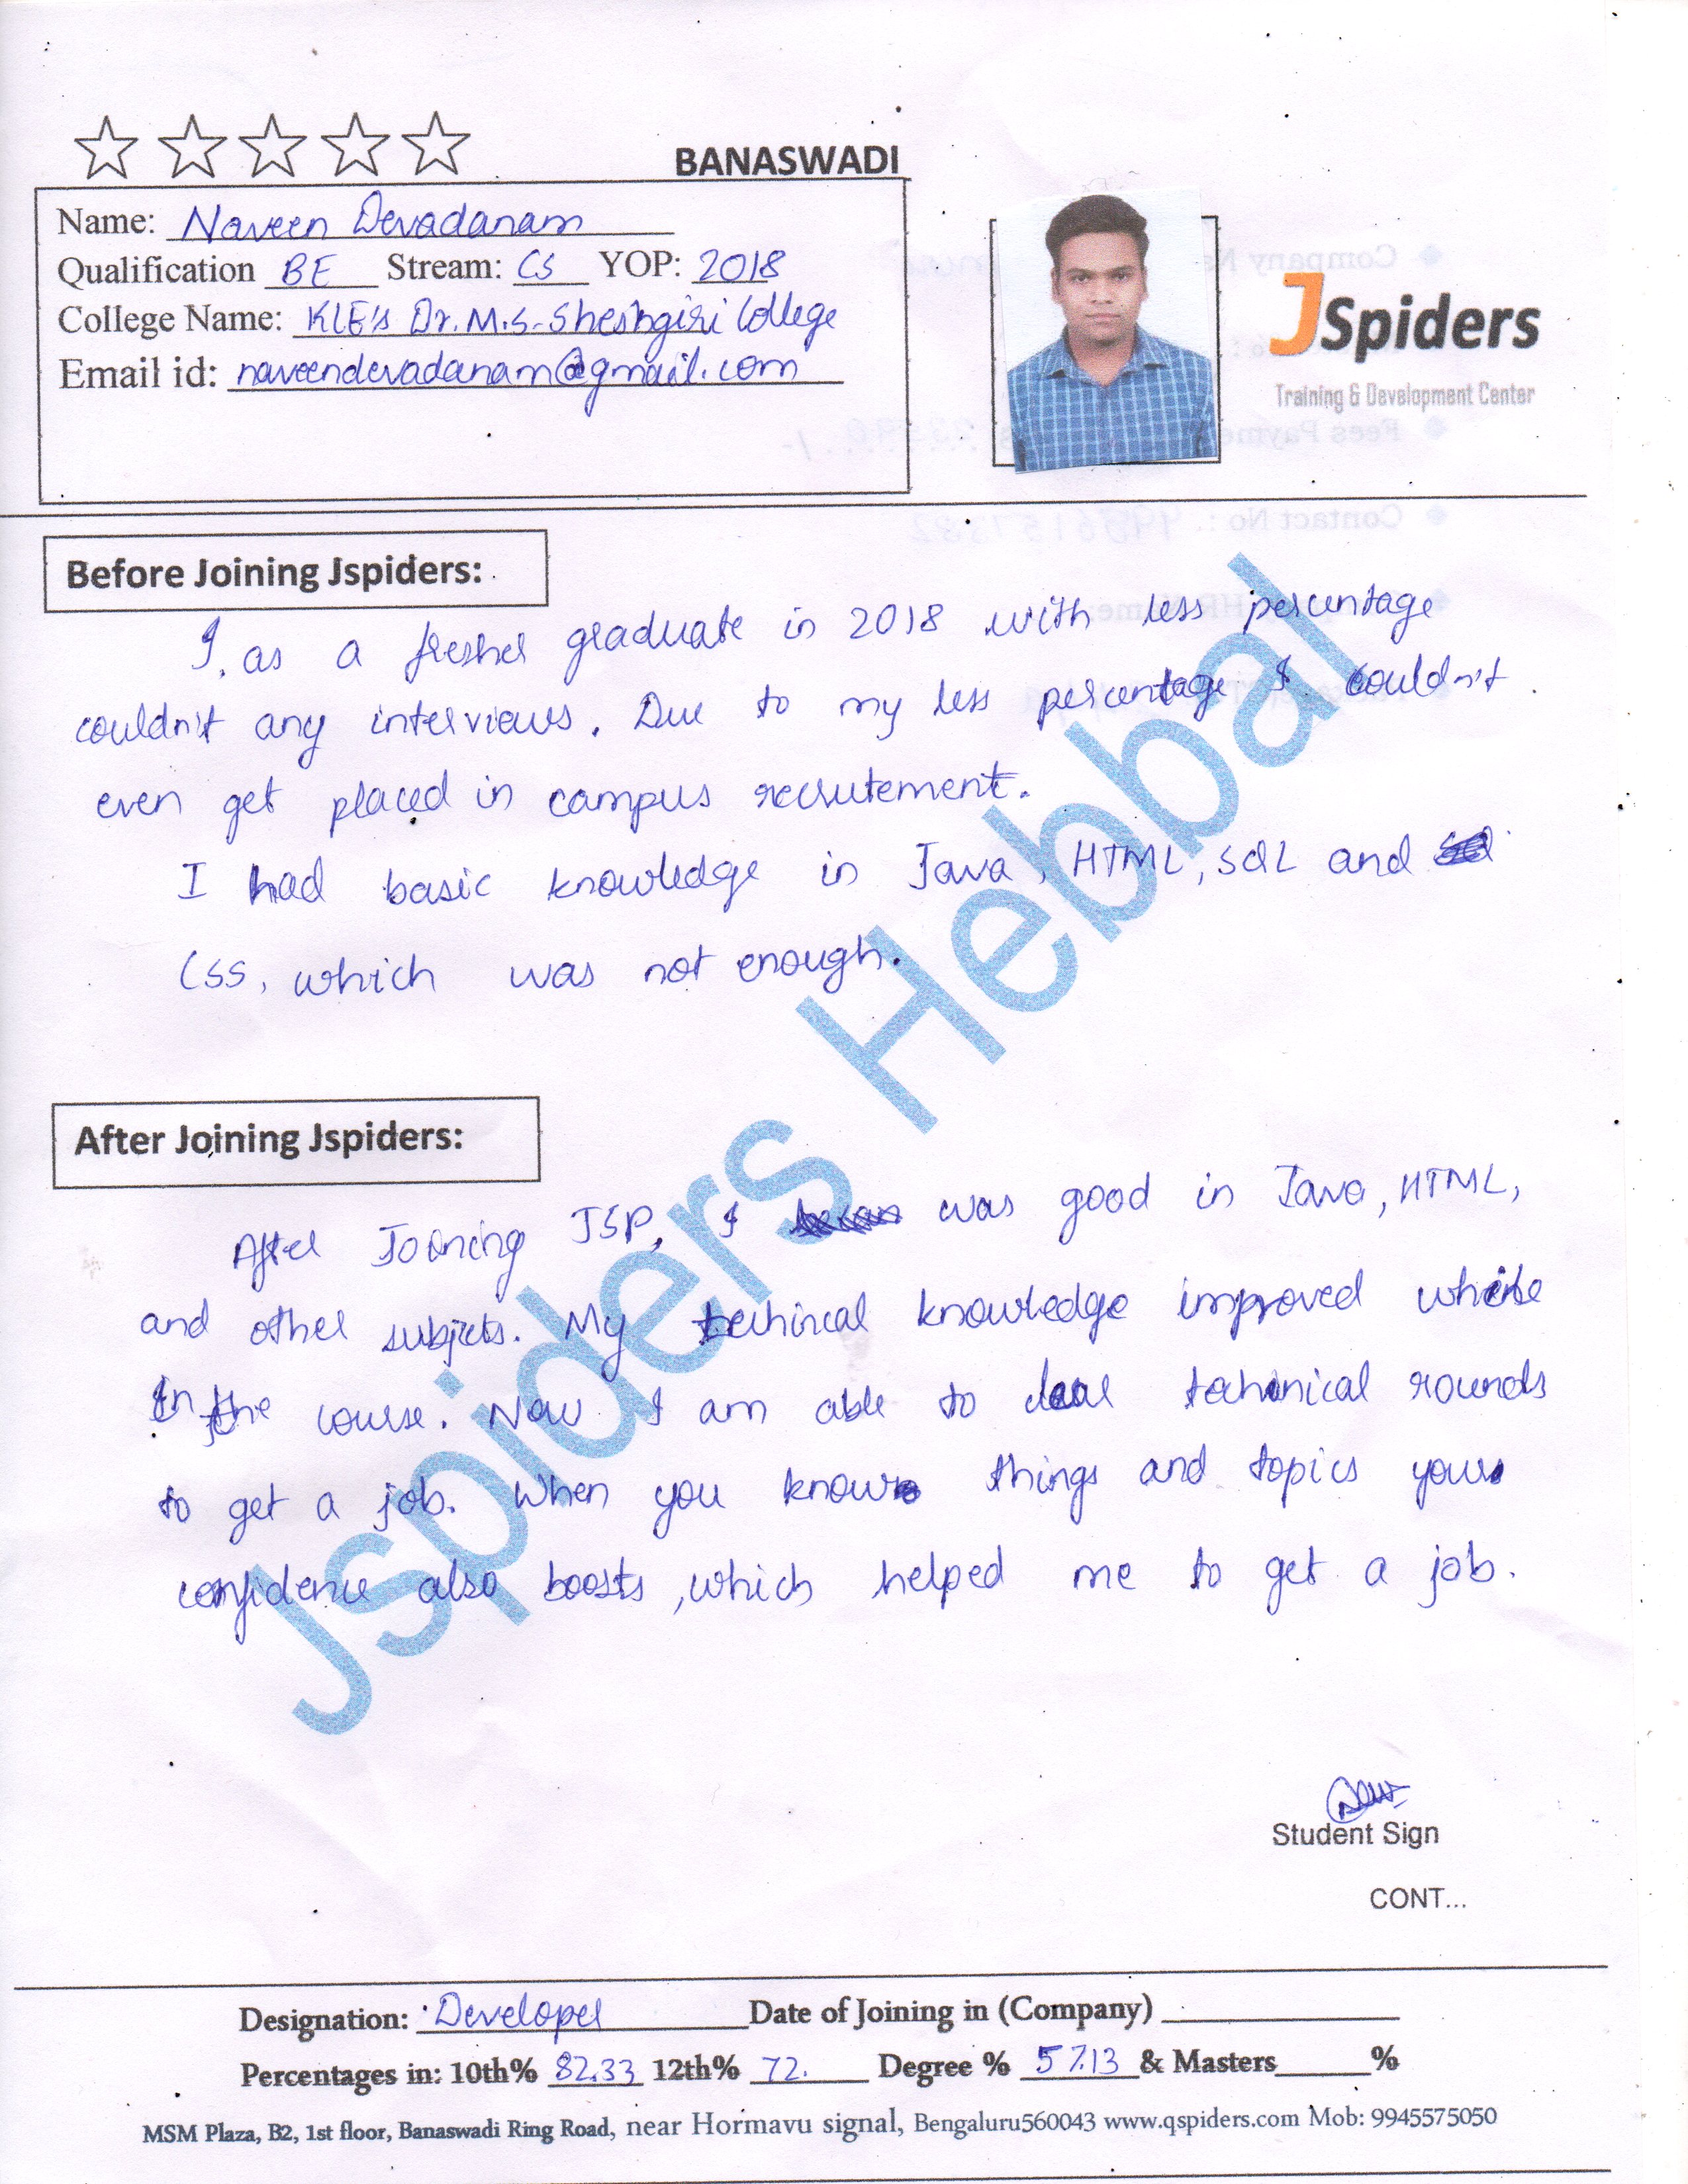 BANASWADI
Name: Naveen Devadanam
Qualification BE Stream: CS YOP: 2018
College Name: KLE's Dr. M.S. Sheshgiri College
Email id: naveendevadanam@gmail.com
JSpiders
Training & Development Center
Before Joining Jspiders:
I, as a fresher graduate in 2018 with less percentage
couldn't any interviews. Due to my less percentage I couldn't
even get placed in campus recrutement.
I had basic knowledge in Java, HTML, SQL and
CSS, which was not enough.
After Joining Jspiders:
After Joining JSP, I was good in Java, HTML,
and other subjects. My techincal knowledge improved while
in the course. Now I am able to clear technical rounds
to get a job. When you know things and topics your
confidence also boosts, which helped me to get a job.
Jspiders Hebbal
Student Sign
CONT...
Designation: Developer Date of Joining in (Company)
Percentages in: 10th% 82.33 12th% 72. Degree % 57.13 & Masters %
MSM Plaza, B2, 1st floor, Banaswadi Ring Road, near Hormavu signal, Bengaluru560043 www.qspiders.com Mob: 9945575050